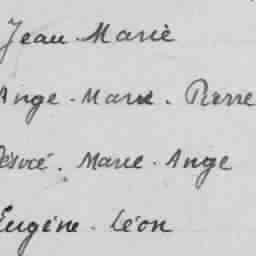 Jean Marie
Ange - Marie - Pierre
Désiré - Marie - Ange
Eugène - Léon